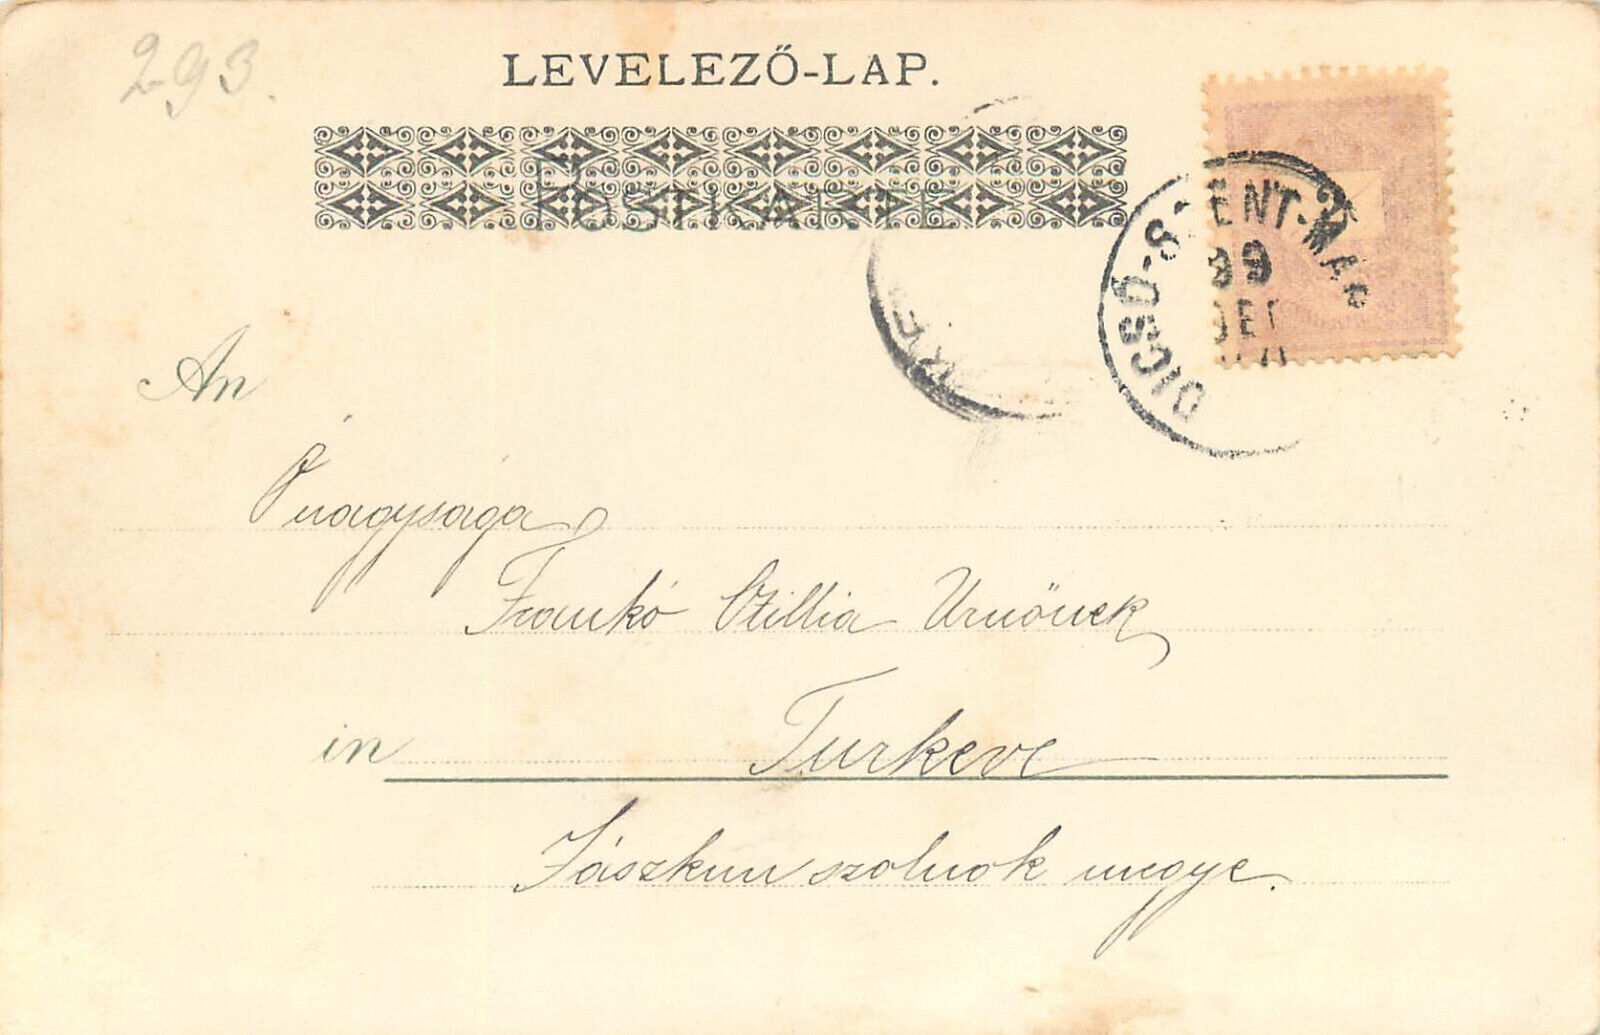 293.
LEVELEZŐ-LAP.
POSTKARTE
DICSŐ-SZENT-MÁR
99
DEC
An
Ő nagysága
Frankó Otillia Urnőnek
in Turkeve
Jászkun szolnok megye.